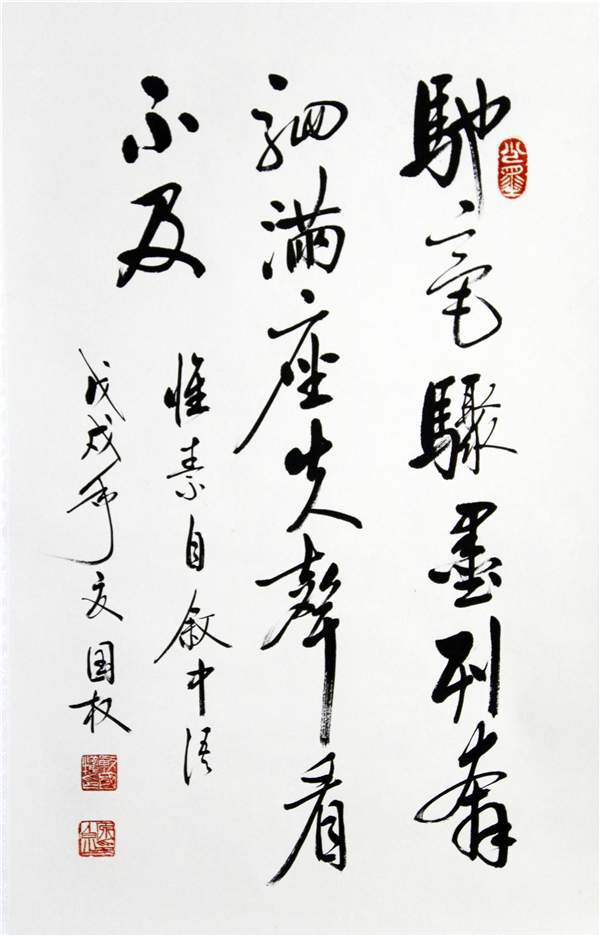 馳毫驟墨列奔
駟滿座失聲看
不及
懷素自叙中语
戊戌年国权